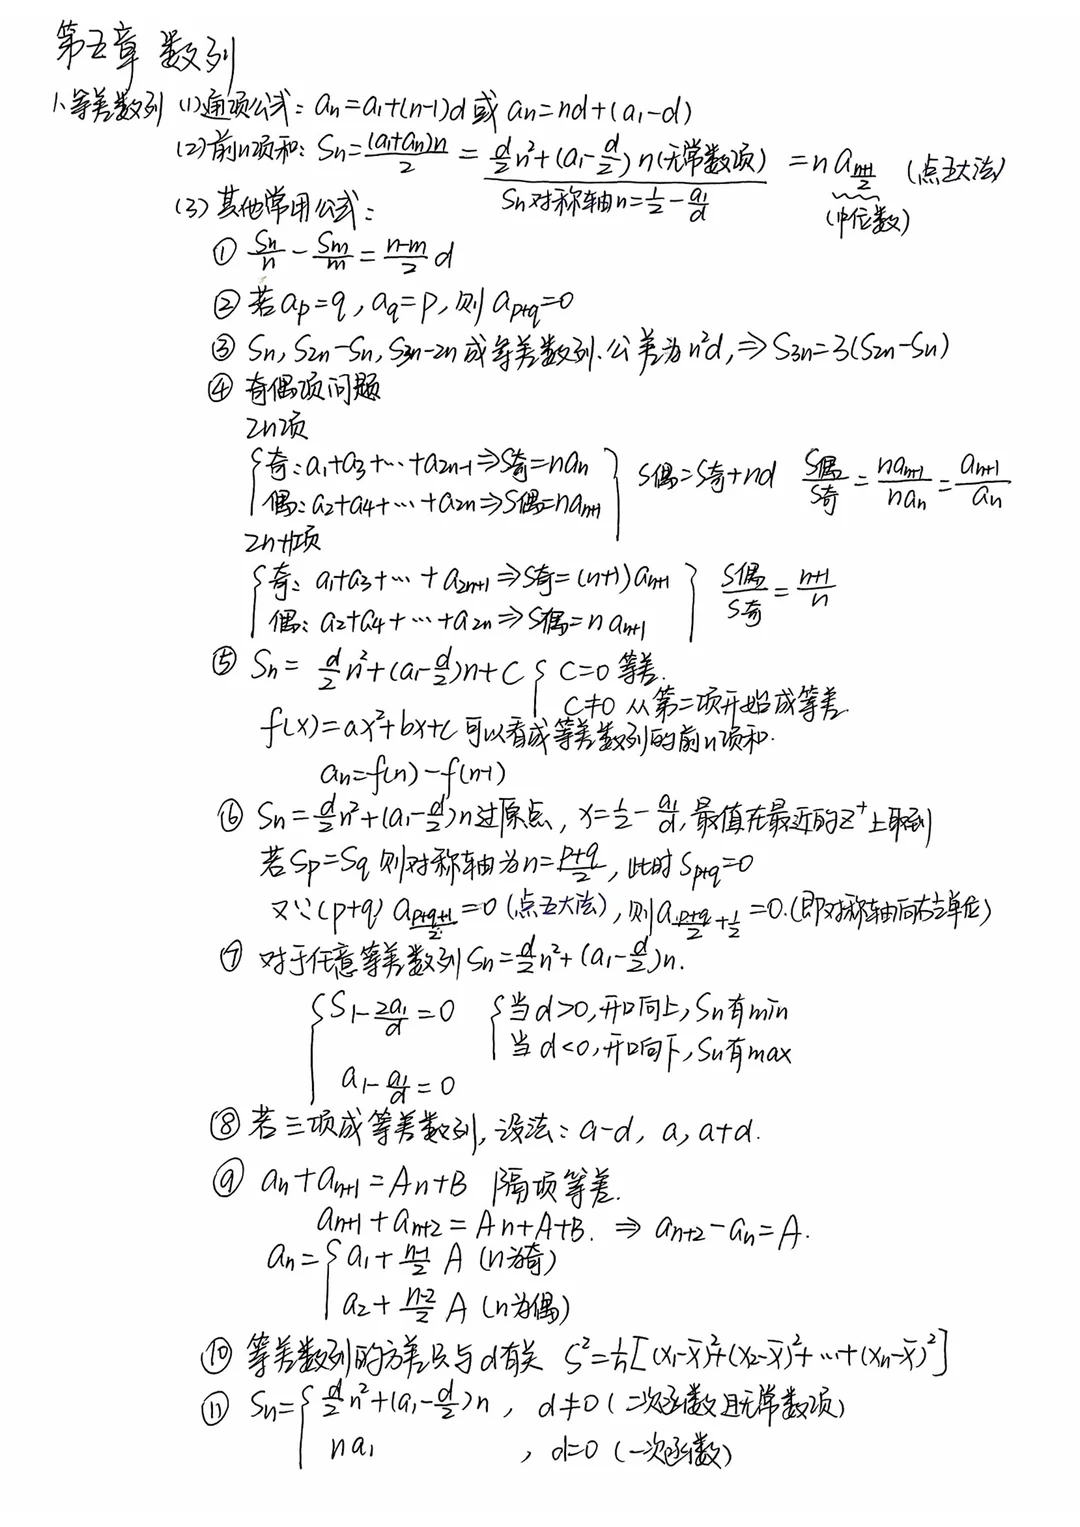 第五章 数列
1、等差数列 (1)通项公式：an=a1+(n-1)d 或 an=nd+(a1-d)
(2)前n项和：Sn=(a1+an)n/2 = d/2 n²+(a1-d/2)n(无常数项) = n a(n+1)/2 (点五大法)
Sn对称轴n=1/2-a1/d (中位数)
(3)其他常用公式：
① Sn/n - Sm/m = (n-m)/2 d
② 若ap=q，aq=p，则 ap+q=0
③ Sn，S2n-Sn，S3n-2n 成等差数列.公差为n²d，⇒S3n=3(S2n-Sn)
④ 奇偶项问题
2n项
奇：a1+a3+…+a2n-1⇒S奇=nan
偶：a2+a4+…+a2n⇒S偶=nan+1 S偶=S奇+nd S偶/S奇=nan+1/nan=an+1/an
2n+1项
奇：a1+a3+…+a2n+1⇒S奇=(n+1)an+1
偶：a2+a4+…+a2n⇒S偶=nan+1 S偶/S奇=(n+1)/n
⑤ Sn= d/2 n²+(a1-d/2)n+C { C=0 等差.
C≠0 从第二项开始成等差.
f(x)=ax²+bx+c 可以看成等差数列的前n项和.
an=f(n)-f(n-1)
⑥ Sn=d/2 n²+(a1-d/2)n过原点，x=1/2-a1/d，最值在最近的Z⁺上取到
若Sp=Sq 则对称轴为n=(p+q)/2，此时Sp+q=0
又∵(p+q) a(p+q+1)/2=0(点五大法)，则a(p+q)/2+1/2=0.(即对称轴向右1/2单位)
⑦ 对于任意等差数列Sn=d/2 n²+(a1-d/2)n.
{ S1-2a1/d=0 { 当d>0，开口向上，Sn有min
当d<0，开口向下，Sn有max
a1-a1/d=0
⑧ 若三项成等差数列，设法：a-d，a，a+d.
⑨ an+an+1=An+B 隔项等差.
an+1+an+2=An+A+B. ⇒ an+2-an=A.
an={ a1+(n-1)/2 A (n为奇)
a2+(n-2)/2 A (n为偶)
⑩ 等差数列的方差只与d有关 S²=1/n[(x1-x̄)²+(x2-x̄)²+…+(xn-x̄)²]
⑪ Sn={ d/2 n²+(a1-d/2)n，d≠0(二次函数且无常数项)
na1 ，d=0 (一次函数)